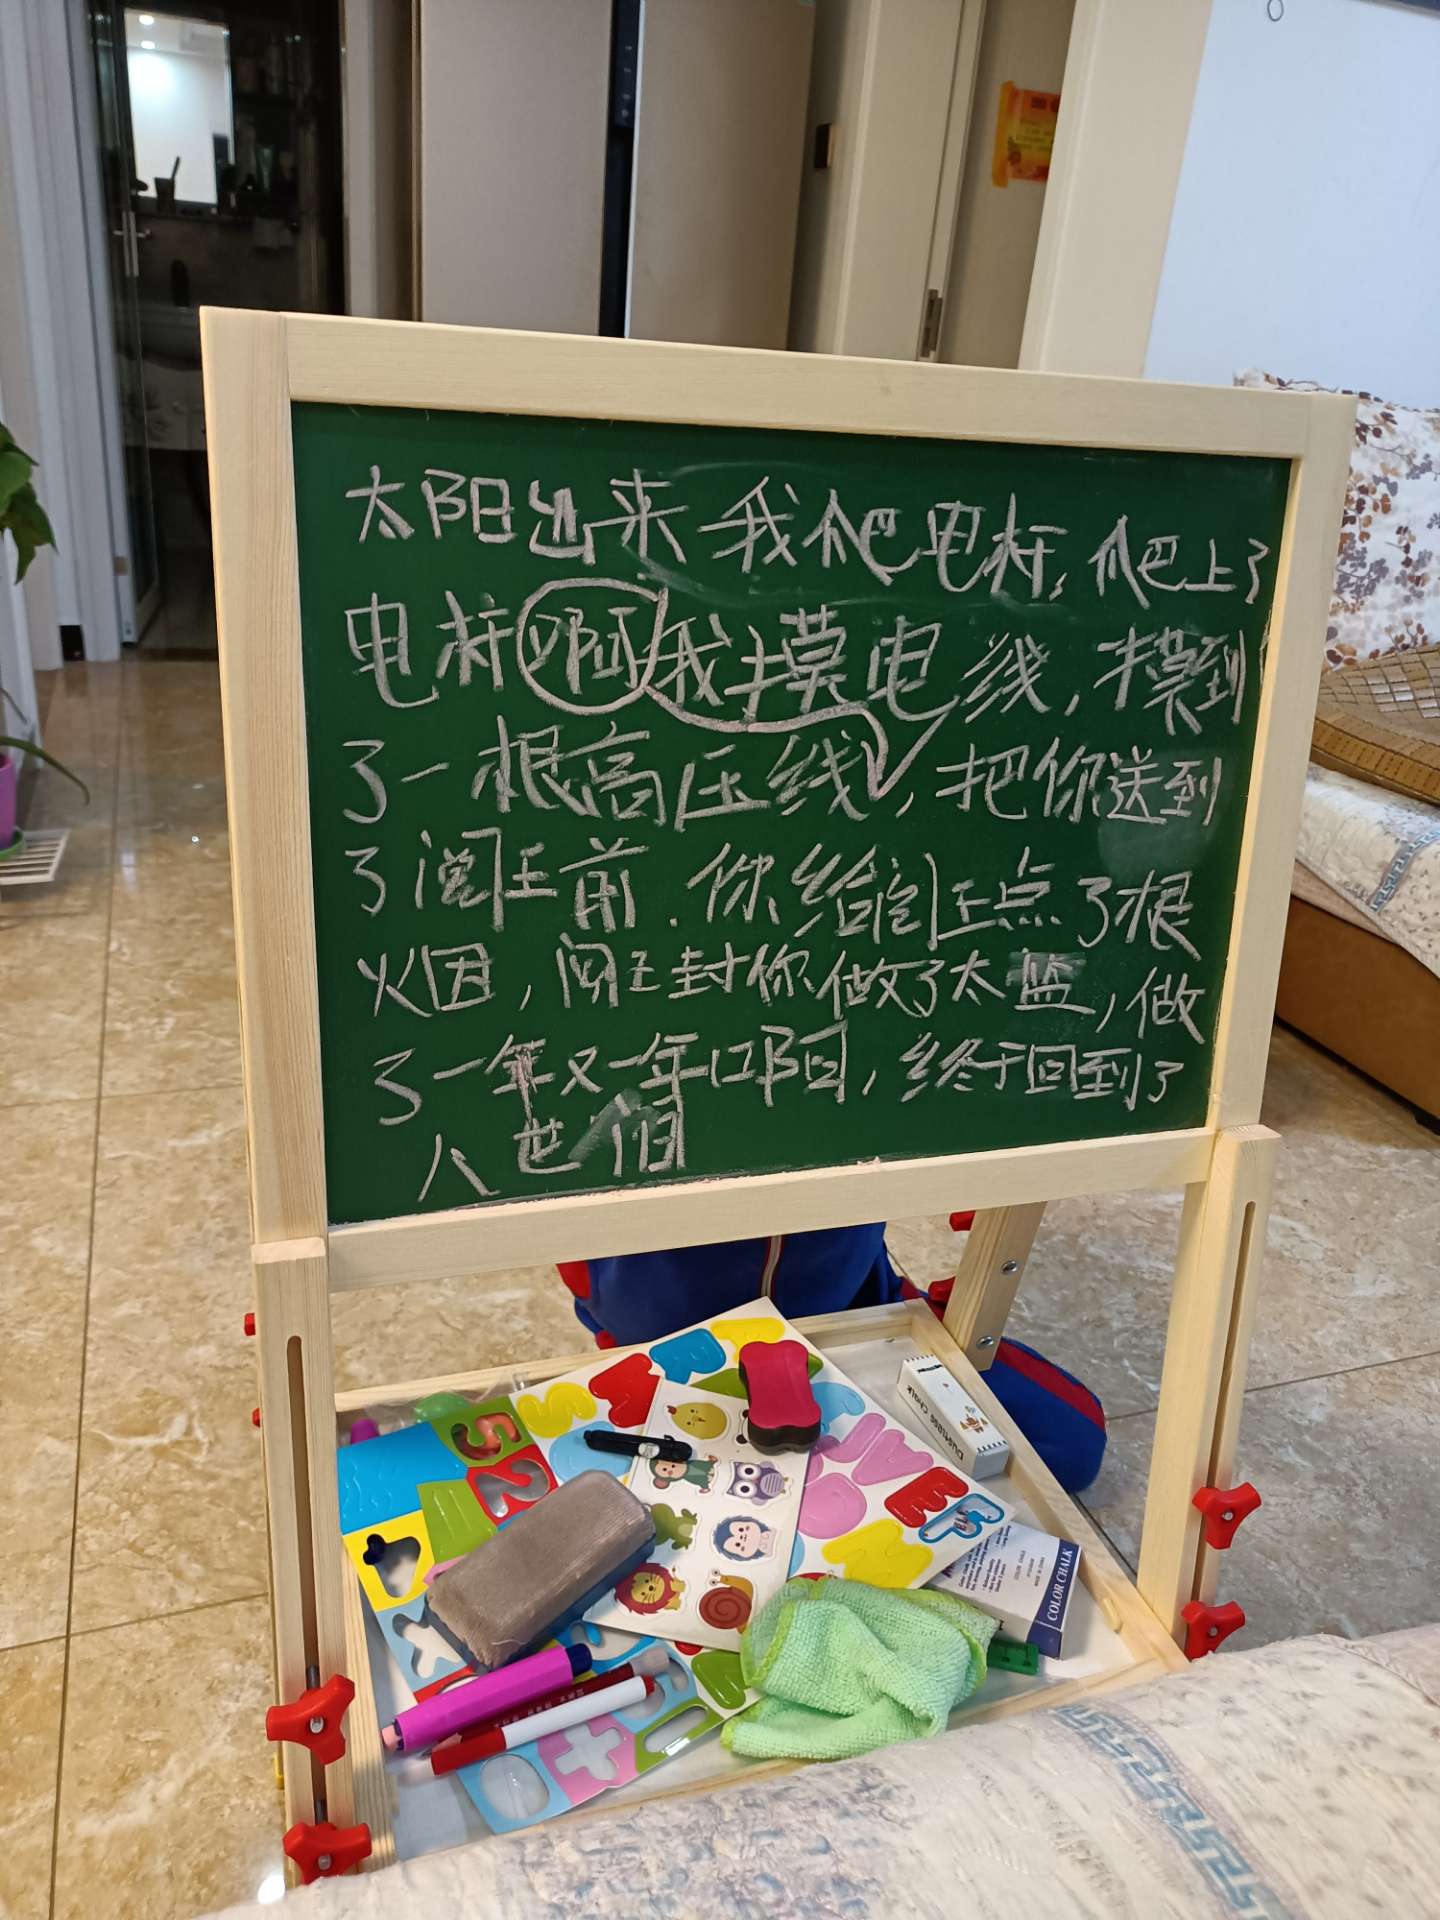 太阳出来我爬电杆,爬上了
电杆啊我摸电线,摸到
了一根高压线,把你送到
了阎王前.你给阎王点了根
烟,阎王封你做了太监,做
了一年又一年口阿,终于回到了
人世间
Dustless Chalk
COLOR CHALK